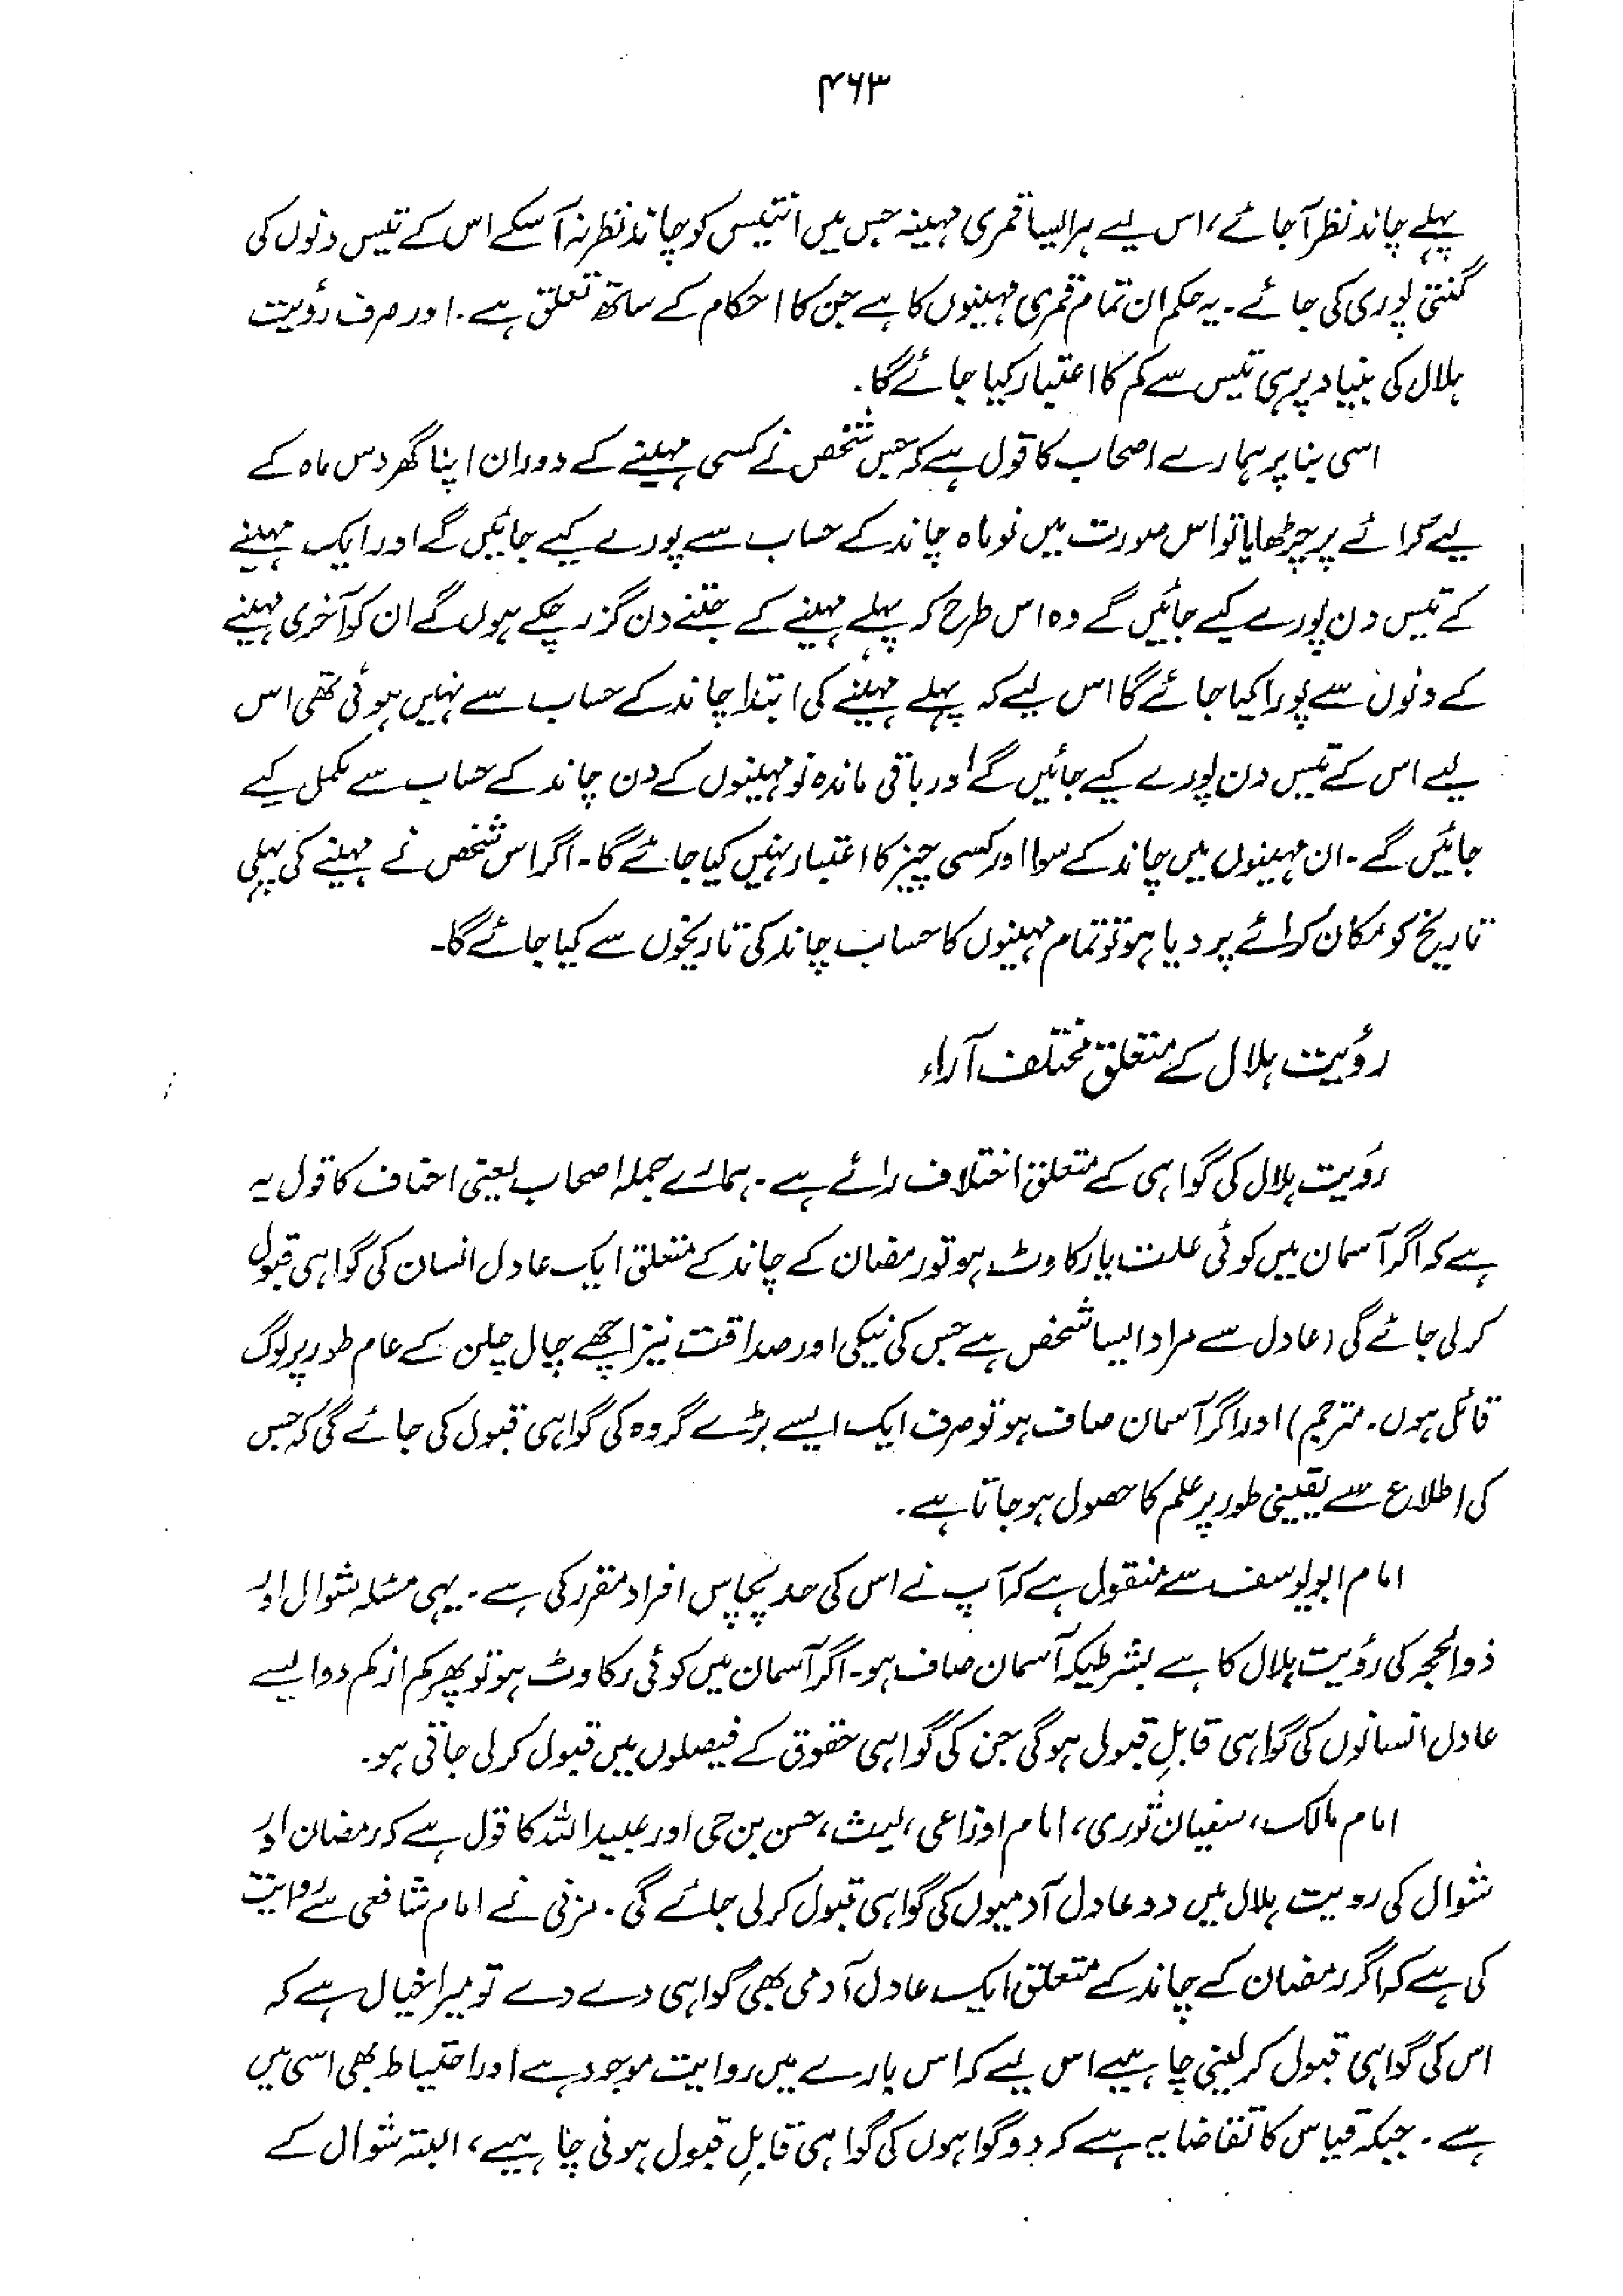 ۴۶۳
پہلے چاند نظر آ جائے، اس لیے ہر ایسا قمری مہینہ جس میں انتیس کو چاند نظر نہ آ سکے اس کے تیس دنوں کی
گنتی پوری کی جائے۔ یہ حکم ان تمام قمری مہینوں کا ہے جن کا احکام کے ساتھ تعلق ہے۔ اور صرف رؤیت
ہلال کی بنیاد پر ہی تیس سے کم کا اعتبار کیا جائے گا۔
اسی بنا پر ہمارے اصحاب کا قول ہے کہ جس شخص نے کسی مہینے کے دوران اپنا گھر دس ماہ کے
لیے کرائے پر چڑھایا تو اس صورت میں نو ماہ چاند کے حساب سے پورے کیے جائیں گے اور ایک مہینے
کے تیس دن پورے کیے جائیں گے وہ اس طرح کہ پہلے مہینے کے جتنے دن گزر چکے ہوں گے ان کو آخری مہینے
کے دنوں سے پورا کیا جائے گا اس لیے کہ پہلے مہینے کی ابتدا چاند کے حساب سے نہیں ہوئی تھی اس
لیے اس کے تیس دن پورے کیے جائیں گے اور باقی ماندہ نو مہینوں کے دن چاند کے حساب سے مکمل کیے
جائیں گے۔ ان مہینوں میں چاند کے سوا اور کسی چیز کا اعتبار نہیں کیا جائے گا۔ اگر اس شخص نے مہینے کی پہلی
تاریخ کو مکان کرائے پر دیا ہو تو تمام مہینوں کا حساب چاند کی تاریخوں سے کیا جائے گا۔
رؤیت ہلال کے متعلق مختلف آراء
رؤیت ہلال کی گواہی کے متعلق اختلاف رائے ہے۔ ہمارے جملہ اصحاب یعنی احناف کا قول یہ
ہے کہ اگر آسمان میں کوئی علت یا رکاوٹ ہو تو رمضان کے چاند کے متعلق ایک عادل انسان کی گواہی قبول
کر لی جائے گی (عادل سے مراد ایسا شخص ہے جس کی نیکی اور صداقت نیز اچھے چال چلن کے عام طور پر لوگ
قائل ہوں۔ مترجم) اور اگر آسمان صاف ہو تو صرف ایک ایسے بڑے گروہ کی گواہی قبول کی جائے گی کہ جس
کی اطلاع سے یقینی طور پر علم کا حصول ہو جاتا ہے۔
امام ابو یوسف سے منقول ہے کہ آپ نے اس کی حد پچاس افراد مقرر کی ہے۔ یہی مسئلہ شوال اور
ذوالحجہ کی رؤیت ہلال کا ہے بشرطیکہ آسمان صاف ہو۔ اگر آسمان میں کوئی رکاوٹ ہو تو پھر کم از کم دو ایسے
عادل انسانوں کی گواہی قابلِ قبول ہوگی جن کی گواہی حقوق کے فیصلوں میں قبول کر لی جاتی ہو۔
امام مالک، سفیان ثوری، امام اوزاعی، لیث، حسن بن حی اور عبید اللہ کا قول ہے کہ رمضان اور
شوال کی رویت ہلال میں دو عادل آدمیوں کی گواہی قبول کر لی جائے گی۔ مزنی نے امام شافعی سے روایت
کی ہے کہ اگر رمضان کے چاند کے متعلق ایک عادل آدمی بھی گواہی دے دے تو میرا خیال ہے کہ
اس کی گواہی قبول کر لینی چاہیے اس لیے کہ اس بارے میں روایت موجود ہے اور احتیاط بھی اسی میں
ہے۔ جبکہ قیاس کا تقاضا یہ ہے کہ دو گواہوں کی گواہی قابلِ قبول ہونی چاہیے، البتہ شوال کے